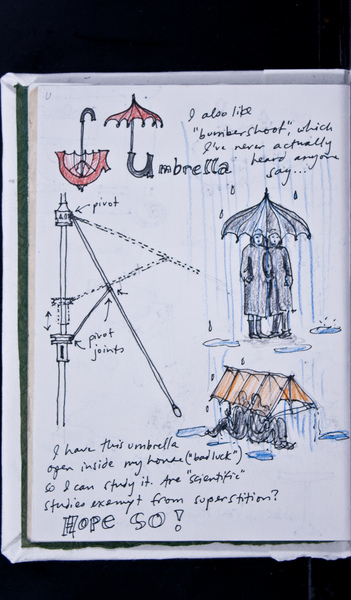 U
Umbrella
I also like
"bumbershoot", which
I've never actually
heard anyone
say...
pivot
pivot
joints
I have this umbrella
open inside my house ("bad luck")
so I can study it. Are "scientific"
studies exempt from superstition?
HOPE SO!